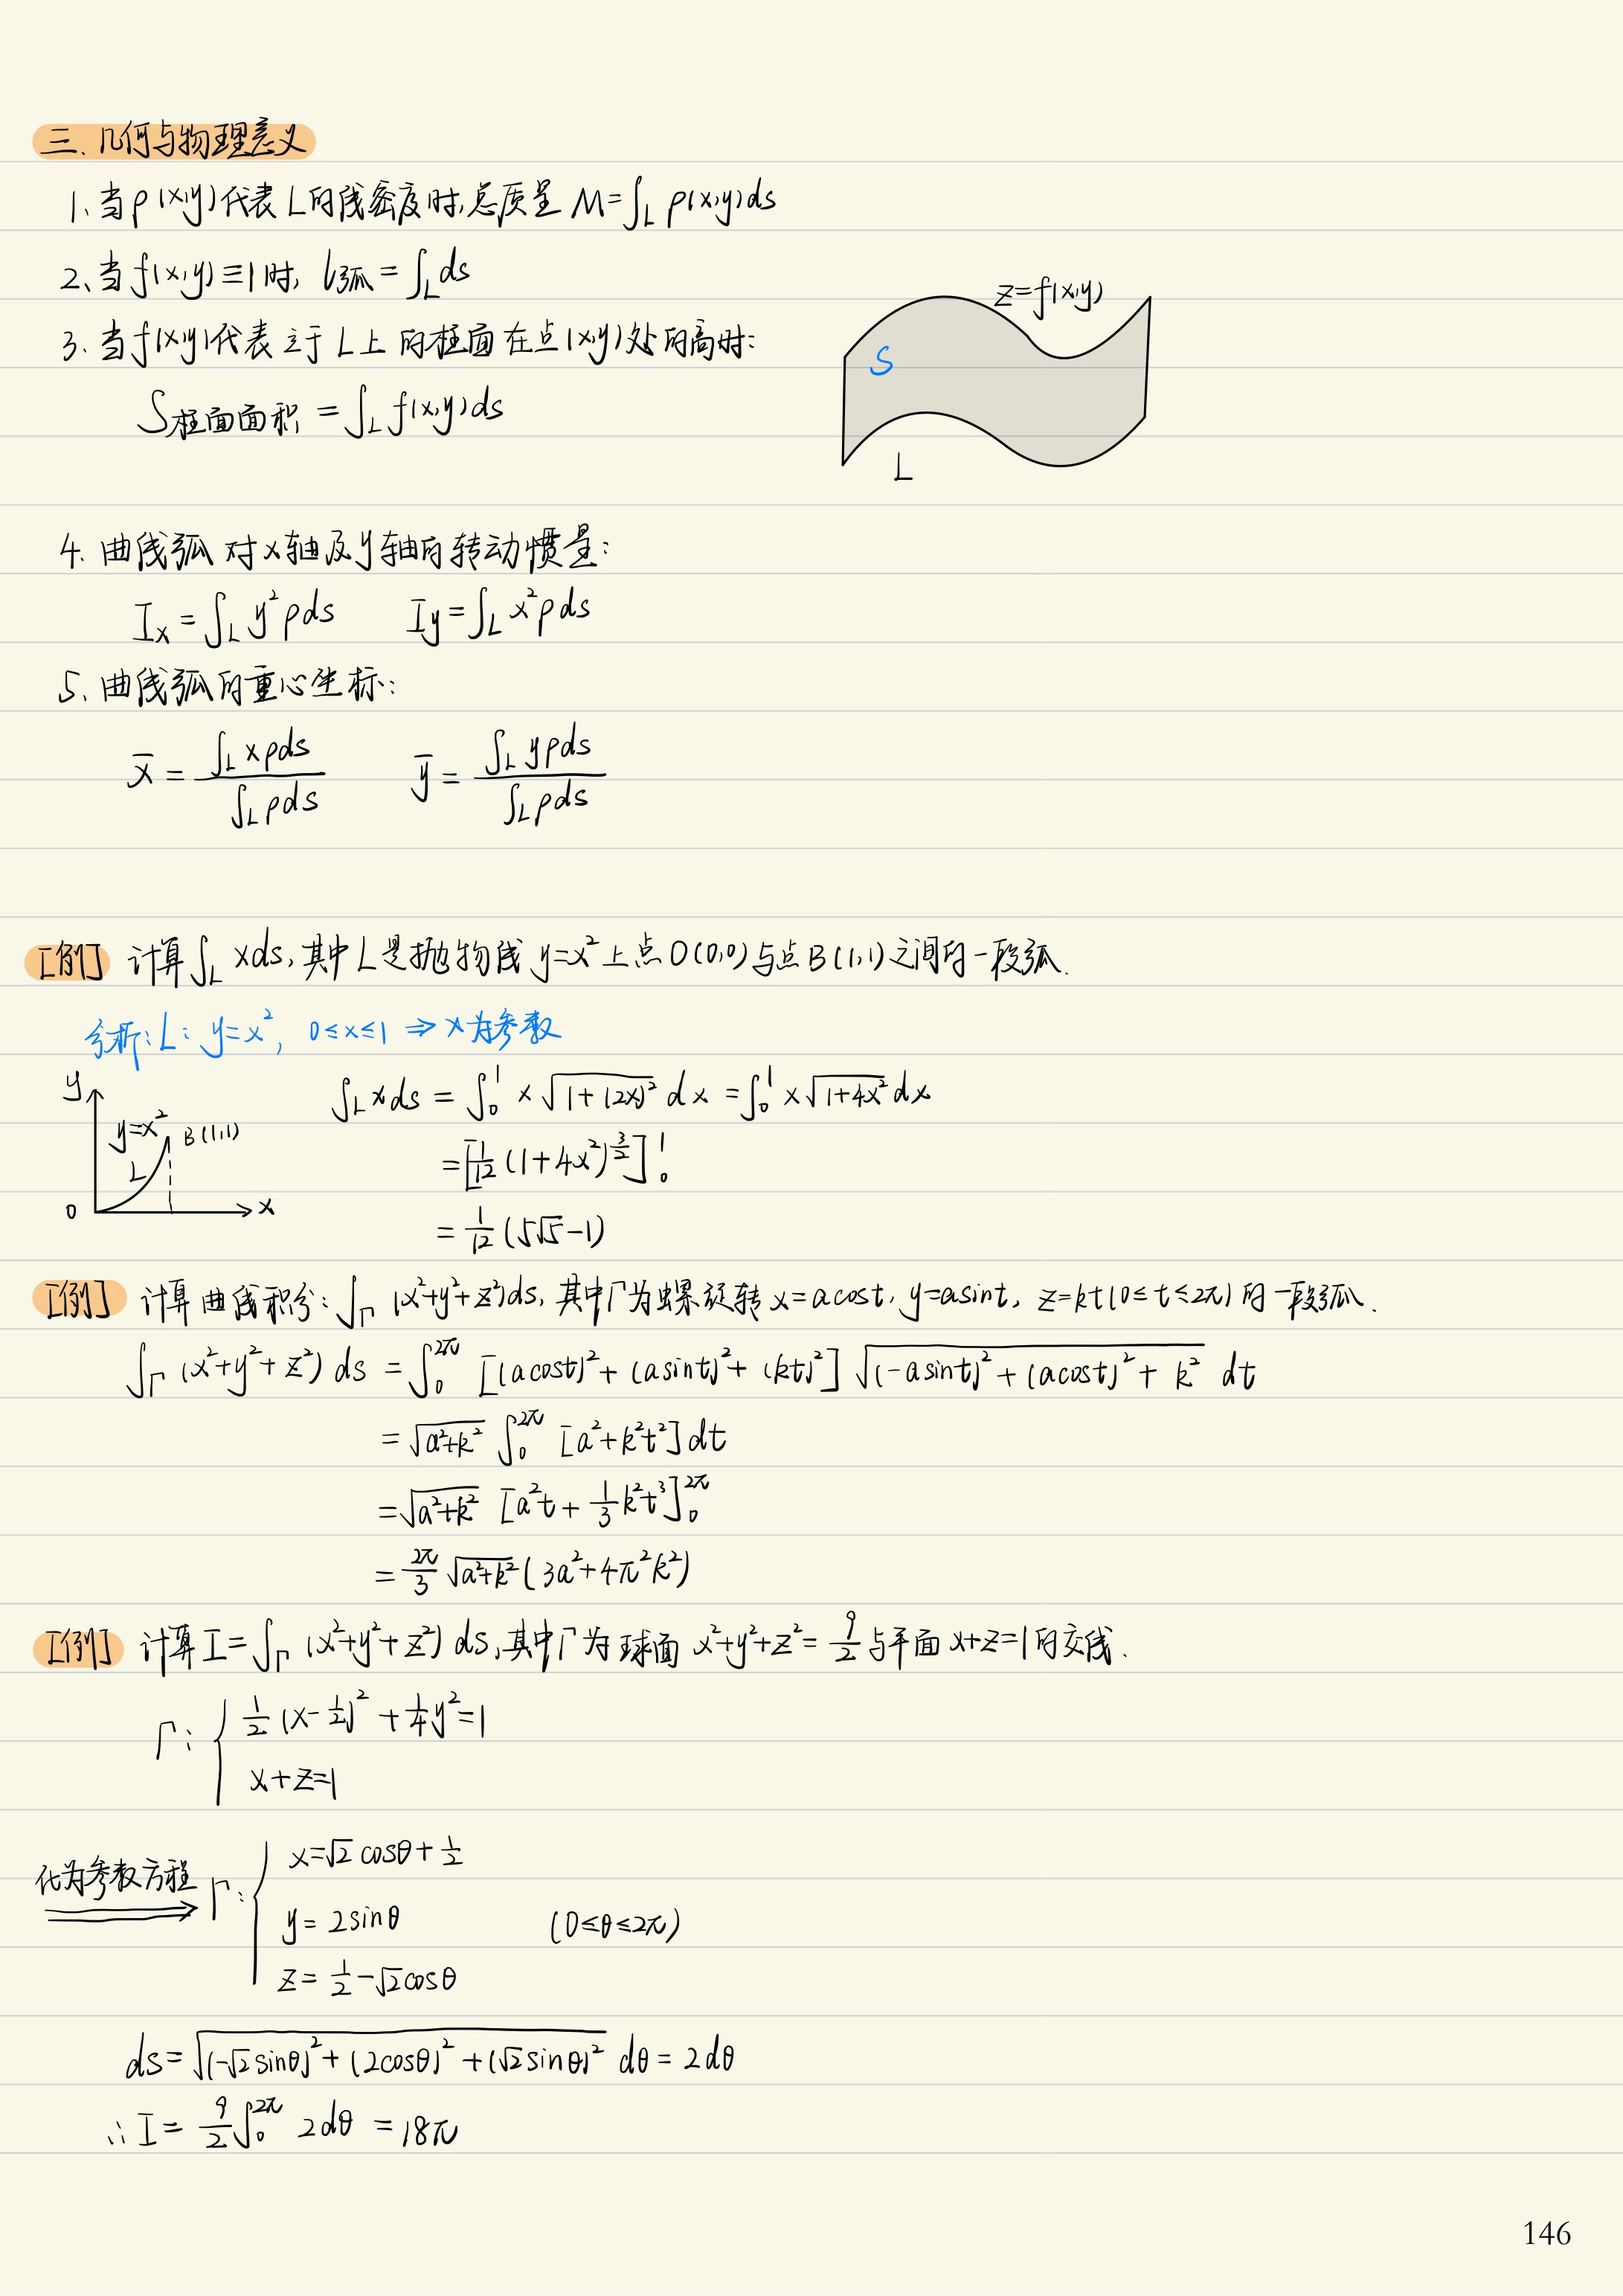 三、几何与物理意义
1、当ρ(x,y)代表L的线密度时,总质量 M=∫_L ρ(x,y)ds
2、当f(x,y)≡1时, l弧=∫_L ds
3、当f(x,y)代表立于L上的柱面在点(x,y)处的高时:
S柱面面积 = ∫_L f(x,y)ds
z=f(x,y)
S
L
4. 曲线弧对x轴及y轴的转动惯量:
I_x = ∫_L y²ρds  I_y = ∫_L x²ρds
5、曲线弧的重心坐标:
x̄ = ∫_L xρds / ∫_L ρds  ȳ = ∫_L yρds / ∫_L ρds
[例] 计算∫_L xds, 其中L是抛物线 y=x² 上点O(0,0)与点B(1,1)之间的一段弧.
分析: L: y=x², 0≤x≤1 ⇒ x为参数
y
y=x²
B(1,1)
L
0
x
∫_L xds = ∫_0^1 x√(1+(2x)²) dx = ∫_0^1 x√(1+4x²) dx
= [1/12 (1+4x²)^(3/2)] |_0^1
= 1/12 (5√5-1)
[例] 计算曲线积分: ∫_Γ (x²+y²+z²)ds, 其中Γ为螺旋转 x=acost, y=asint, z=kt(0≤t≤2π)的一段弧.
∫_Γ (x²+y²+z²) ds = ∫_0^2π [(acost)²+(asint)²+(kt)²] √((-asint)²+(acost)²+k²) dt
= √(a²+k²) ∫_0^2π [a²+k²t²]dt
= √(a²+k²) [a²t + 1/3 k²t³]_0^2π
= 2π/3 √(a²+k²) (3a²+4π²k²)
[例] 计算 I=∫_Γ (x²+y²+z²) ds, 其中Γ为球面 x²+y²+z²=9/2 与平面 x+z=1的交线.
Γ: { 1/2 (x-1/2)² + 1/4 y² = 1
x+z=1
化为参数方程 ⇒ Γ: { x=√2 cosθ+1/2
y=2sinθ (0≤θ≤2π)
z=1/2-√2cosθ
ds=√((-√2sinθ)²+(2cosθ)²+(√2sinθ)²) dθ = 2dθ
∴I = 9/2 ∫_0^2π 2dθ = 18π
146